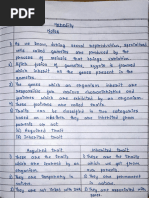 Heredity
Notes
1) As we know, during sexual reproduction, specialised
cells called gametes are produced by the
process of meiosis that brings variation.
2) After fusion of gametes, zygote is formed
which inherit all the genes present in the
gametes.
3) The genes which an organism inherits are
responsible for various characteristics and
which are exhibited by an organism.
4) These features are called traits.
5) Traits can be classified into two categories
which are based on whether they are inherited from
parents or not.
i) Acquired Trait
ii) Inherited Trait
Acquired Trait
Inherited Trait
1) These are the traits
which are
by an
1) These are the traits
which an
get from
organism
2) They are temporary
in nature.
2) They are permanent
in nature.
3) They are not
with
3) They are associated with